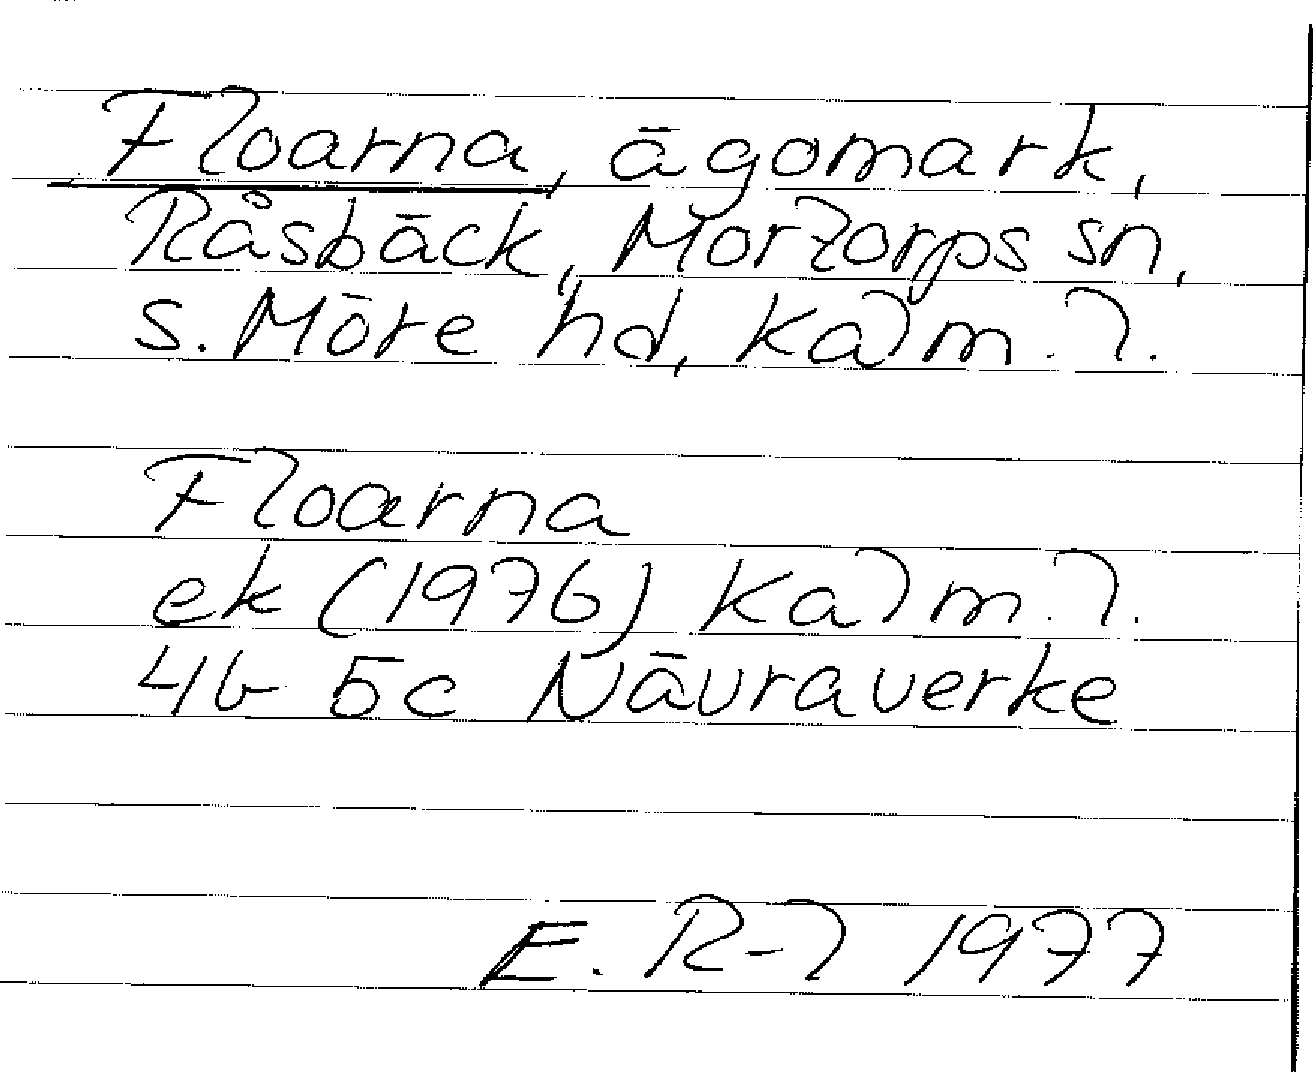 Floarna, ägomark,
Råsbäck, Mortorps sn,
S. Möre hd, Kalm. l.
Floarna
ek (1976) Kalm. l.
4G 5c Nävraverke
E. R-l 1977